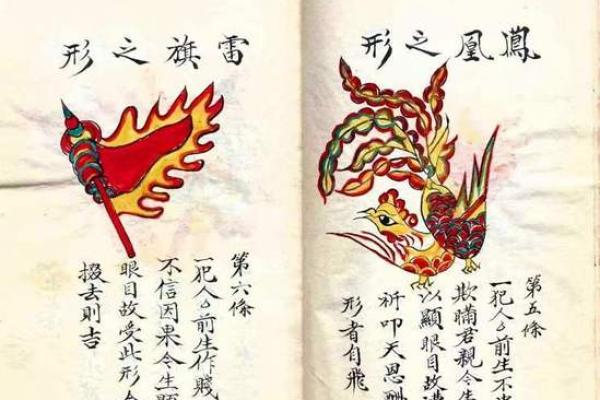 鳳凰之形
第五條
一犯人厶前生不
欺瞞君親今生
以顯眼目故遭
祈叩天恩酬
形者自飛
雷旗之形
第六條
一犯人厶前生作賤
不信因果今生顯
眼目故受此形
掇去則吉